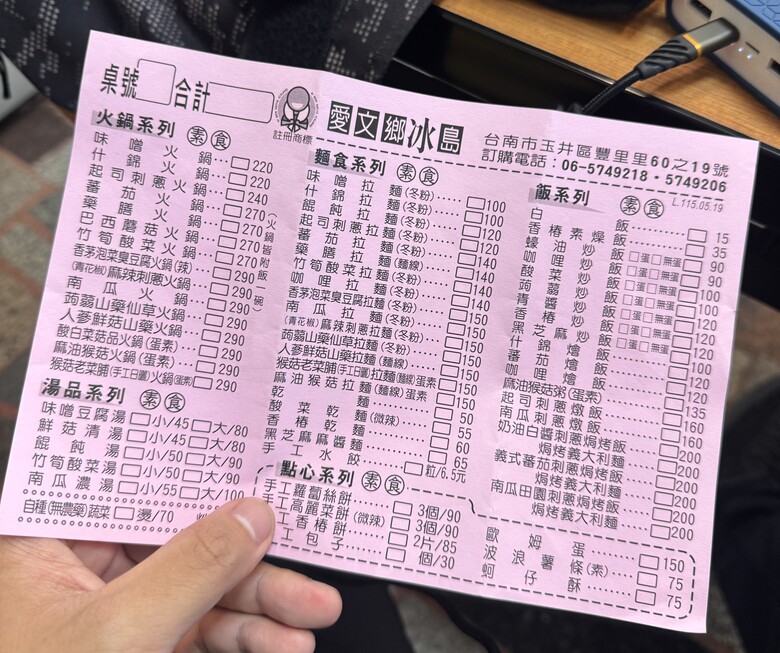 桌號 合計
註冊商標
愛文鄉冰島
台南市玉井區豐里里60之19號
訂購電話：06-5749218・5749206
L.115.05.19
火鍋系列 素食
味噌火鍋…□220
什錦火鍋…□220
起司刺蔥火鍋…□240
番茄火鍋…□270
藥膳火鍋…□270
巴西蘑菇火鍋…□270
竹筍酸菜火鍋…□270
香茅泡菜臭豆腐火鍋(辣)□290
(青花椒)麻辣刺蔥火鍋…□290
南瓜火鍋…□290
蒟蒻山藥仙草火鍋…□290
人蔘鮮菇山藥火鍋…□290
酸白菜菇品火鍋(蛋素)…□290
麻油猴菇火鍋(蛋素)…□290
猴菇老菜脯(手工日曬)火鍋(蛋素)□290
(火鍋皆附飯一碗)
湯品系列 素食
味噌豆腐湯□小/45□大/80
鮮菇清湯□小/50□大/90
餛飩湯□小/50□大/90
竹筍酸菜湯□小/50□大/90
南瓜濃湯□小/55□大/100
自種(無農藥)蔬菜□燙/70
麵食系列 素食
味噌拉麵(冬粉)…□100
什錦拉麵(冬粉)…□100
餛飩拉麵(冬粉)…□120
起司刺蔥拉麵(冬粉)…□120
番茄拉麵(冬粉)…□140
藥膳拉麵(麵線)…□140
竹筍酸菜拉麵(冬粉)…□140
咖哩拉麵(冬粉)…□140
香茅泡菜臭豆腐拉麵(冬粉)□150
南瓜拉麵(冬粉)…□150
(青花椒)麻辣刺蔥拉麵(冬粉)□150
蒟蒻山藥仙草拉麵(冬粉)…□150
人蔘鮮菇山藥拉麵(麵線)…□150
猴菇老菜脯(手工日曬)拉麵(麵線)蛋素□150
麻油猴菇拉麵(麵線)蛋素□150
乾麵…□50
酸菜乾麵(微辣)…□55
香椿乾麵…□60
黑芝麻麻醬麵…□65
手工水餃…□粒/6.5元
飯系列 素食
白飯…□15
香椿素燥飯…□35
蠔油炒飯□蛋□無蛋□90
咖哩炒飯□蛋□無蛋□90
酸菜炒飯□蛋□無蛋□100
蒟蒻炒飯□蛋□無蛋□100
青醬炒飯□蛋□無蛋□120
香椿炒飯□蛋□無蛋□100
黑芝麻炒飯□蛋□無蛋□120
什錦燴飯…□120
番茄燴飯…□120
咖哩燴飯…□120
麻油猴菇粥(蛋素)…□135
起司刺蔥燉飯…□160
南瓜刺蔥燉飯…□160
奶油白醬刺蔥焗烤飯…□200
焗烤義大利麵…□200
義式蕃茄刺蔥焗烤飯…□200
焗烤義大利麵…□200
南瓜田園刺蔥焗烤飯…□200
焗烤義大利麵…□200
點心系列 素食
手工蘿蔔絲餅…□3個/90
手工高麗菜餅(微辣)□3個/90
手工香椿餅…□2片/85
手工包子…□個/30
歐姆蛋…□150
波浪薯條(素)…□75
蚵仔酥…□75